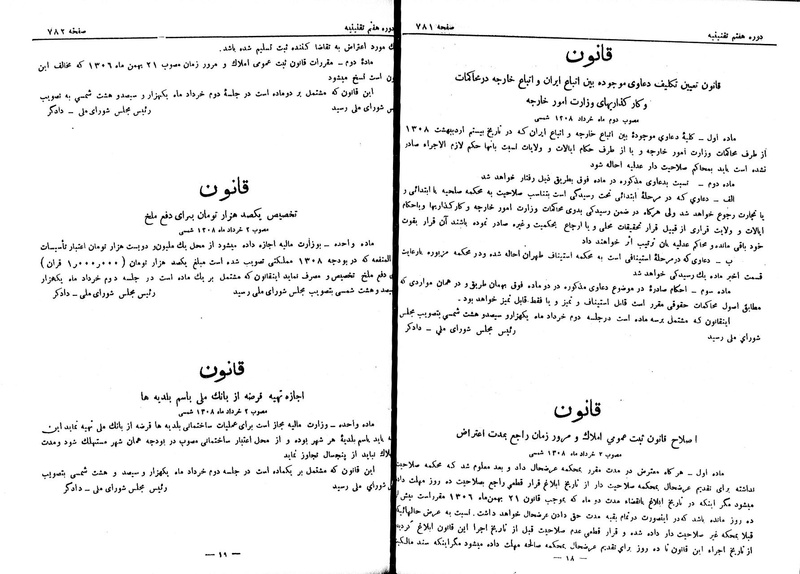 صفحه ۷۸۱
دوره هفتم تقنینیه
قانون
قانون تعیین تکلیف دعاوی موجوده بین اتباع ایران و اتباع خارجه در محاکمات
و کارگذاریهای وزارت امور خارجه
مصوب دوم ماه خرداد ۱۳۰۸ شمسی
ماده اول – کلیهٔ دعاوی موجودهٔ بین اتباع خارجه و اتباع ایران که در تاریخ بیستم اردیبهشت ۱۳۰۸
از طرف محاکمات وزارت امور خارجه و یا از طرف حکام ایالات و ولایات نسبت بآنها حکم لازم الاجراء صادر
نشده است باید بمحاکم صلاحیت دار عدلیه احاله شود
ماده دوم – نسبت بدعاوی مذکوره در ماده فوق بطریق ذیل رفتار خواهد شد
الف – دعاوی که در مرحلهٔ ابتدائی تحت رسیدگی است بتناسب صلاحیت به محکمه صلحیه یا ابتدائی و
یا تجارت رجوع خواهد شد ولی هرگاه در ضمن رسیدگی بدوی محاکمات وزارت امور خارجه و کارگذاریها و یا حکام
ایالات و ولایات قراری از قبیل قرار تحقیقات محلی و یا ارجاع بحکمیت وغیره صادر نموده باشند آن قرار بقوت
خود باقی مانده و محاکم عدلیه بآن ترتیب اثر خواهند داد
ب – دعاوی که در مرحلهٔ استینافی است به محکمه استیناف طهران احاله شده و در محکمه مزبوره بارعایت
قسمت اخیر ماده یک رسیدگی خواهد شد
ماده سوم – احکام صادرهٔ در موضوع دعاوی مذکوره در دو ماده فوق بهمان طریق و در همان مواردی که
مطابق اصول محاکمات حقوقی مقرر است قابل استیناف و تمیز و یا فقط قابل تمیز خواهد بود .
اینقانون که مشتمل برسه ماده است در جلسه دوم خرداد ماه یکهزار و سیصد و هشت شمسی بتصویب مجلس
شورای ملی رسید رئیس مجلس شورای ملی – دادگر
قانون
اصلاح قانون ثبت عمومی املاک و مرور زمان راجع بمدت اعتراض
مصوب ۲ خرداد ماه ۱۳۰۸ شمسی
ماده اول – هرگاه معترض در مدت مقرر بمحکمه عرضحال داد و بعد معلوم شد که محکمه صلاحیت
نداشته برای تقدیم عرضحال بمحکمه صلاحیت دار از تاریخ ابلاغ قرار قطعی راجع بصلاحیت ده روز مهلت دارد
میشود مگر اینکه در تاریخ ابلاغ بانقضاء مدت دو ماه که بموجب قانون ۲۱ بهمن ماه ۱۳۰۶ مقرر است بیش از
ده روز مانده باشد که در اینصورت در تمام بقیه مدت حق دادن عرضحال خواهد داشت . نسبت به عرض حالهائیکه
قبلا بمحکمه غیر صلاحیت دار داده شده و قرار قطعی عدم صلاحیت قبل از تاریخ اجرا این قانون ابلاغ گردیده
از تاریخ اجراء این قانون تا ده روز برای تقدیم عرضحال بمحکمه صالحه مهلت داده میشود مگر اینکه سند مالکیت
– ۱۸ –
صفحه ۷۸۲
دوره هفتم تقنینیه
ملک مورد اعتراض به تقاضا کننده ثبت تسلیم شده باشد.
مادهٔ دوم – مقررات قانون ثبت عمومی املاک و مرور زمان مصوب ۲۱ بهمن ماه ۱۳۰۶ که مخالف این
قانون است نسخ میشود
این قانون که مشتمل بر دوماده است در جلسهٔ دوم خرداد ماه یکهزار و سیصدو هشت شمسی به تصویب
مجلس شورای ملی رسید رئیس مجلس شورای ملی – دادگر
قانون
تخصیص یکصد هزار تومان برای دفع ملخ
مصوب ۲ خرداد ماه ۱۳۰۸ شمسی
ماده واحده – بوزارت مالیه اجازه داده میشود از محل یک ملیون و دویست هزار تومان اعتبار تأسیسات
المنفعه که در بودجه ۱۳۰۸ مملکتی تصویب شده است مبلغ یکصد هزار تومان (۱٬۰۰۰٬۰۰۰ قران)
دفع ملخ تخصیص و مصرف نماید اینقانون که مشتمل بر یک ماده است در جلسه دوم خرداد ماه یکهزار
سیصد و هشت شمسی بتصویب مجلس شورای ملی رسید رئیس مجلس شورای ملی – دادگر
قانون
اجازه تهیه قرضه از بانک ملی باسم بلدیه ها
مصوب ۲ خرداد ماه ۱۳۰۸ شمسی
ماده واحده – وزارت مالیه مجاز است برای عملیات ساختمانی بلدیه ها قرضه از بانک ملی تهیه نماید این
باید باسم بلدیهٔ هر شهر بوده و از محل اعتبار ساختمانی مصوب در بودجه همان شهر مستهلک شود ومدت
نباید از پنجسال تجاوز نماید
این قانون که مشتمل بر یکماده است در جلسه دوم خرداد ماه یکهزار و سیصد و هشت شمسی بتصویب
مجلس شورای ملی رسید رئیس مجلس شورای ملی – دادگر
– ۱۹ –